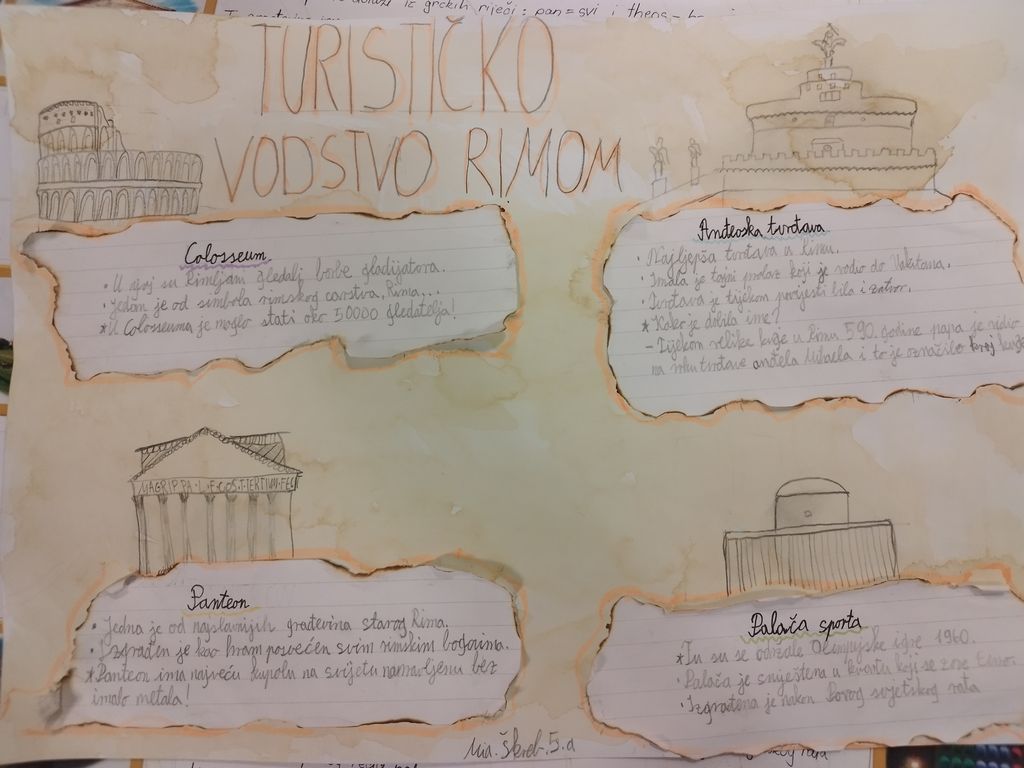 iz grčkih riječi: pan=svi i theos-
TURISTIČKO
VODSTVO RIMOM
Colosseum
• U njoj su Rimljani gledali borbe gladijatora.
• Jedan je od simbola rimskog carstva, Rima,...
* U Colosseumu je moglo stati oko 50000 gledatelja!
Anđeoska tvrđava
• Najljepša tvrđava u Rimu.
• Imala je tajni prolaz koji je vodio do Vatikana.
• Tvrđava je tijekom povijesti bila i zatvor.
* Kako je dobila ime?
- Tijekom velike kuge u Rimu 590. godine papa je vidio
na vrhu tvrđave anđela Mihaela i to je označilo kraj kuge
M·AGRIPPA·L·F·COS·TERTIUM·FECI
Panteon
• Jedna je od najslavnijih građevina starog Rima.
• Izgrađen je kao hram posvećen svim rimskim bogovima.
* Panteon ima najveću kupolu na svijetu napravljenu bez
imalo metala!
Palača sporta
* Tu su se održale Olimpijske igre 1960.
• Palača je smještena u kvartu koji se zove
• Izgrađena je nakon svjetskog rata
Mia Škreb 5.a